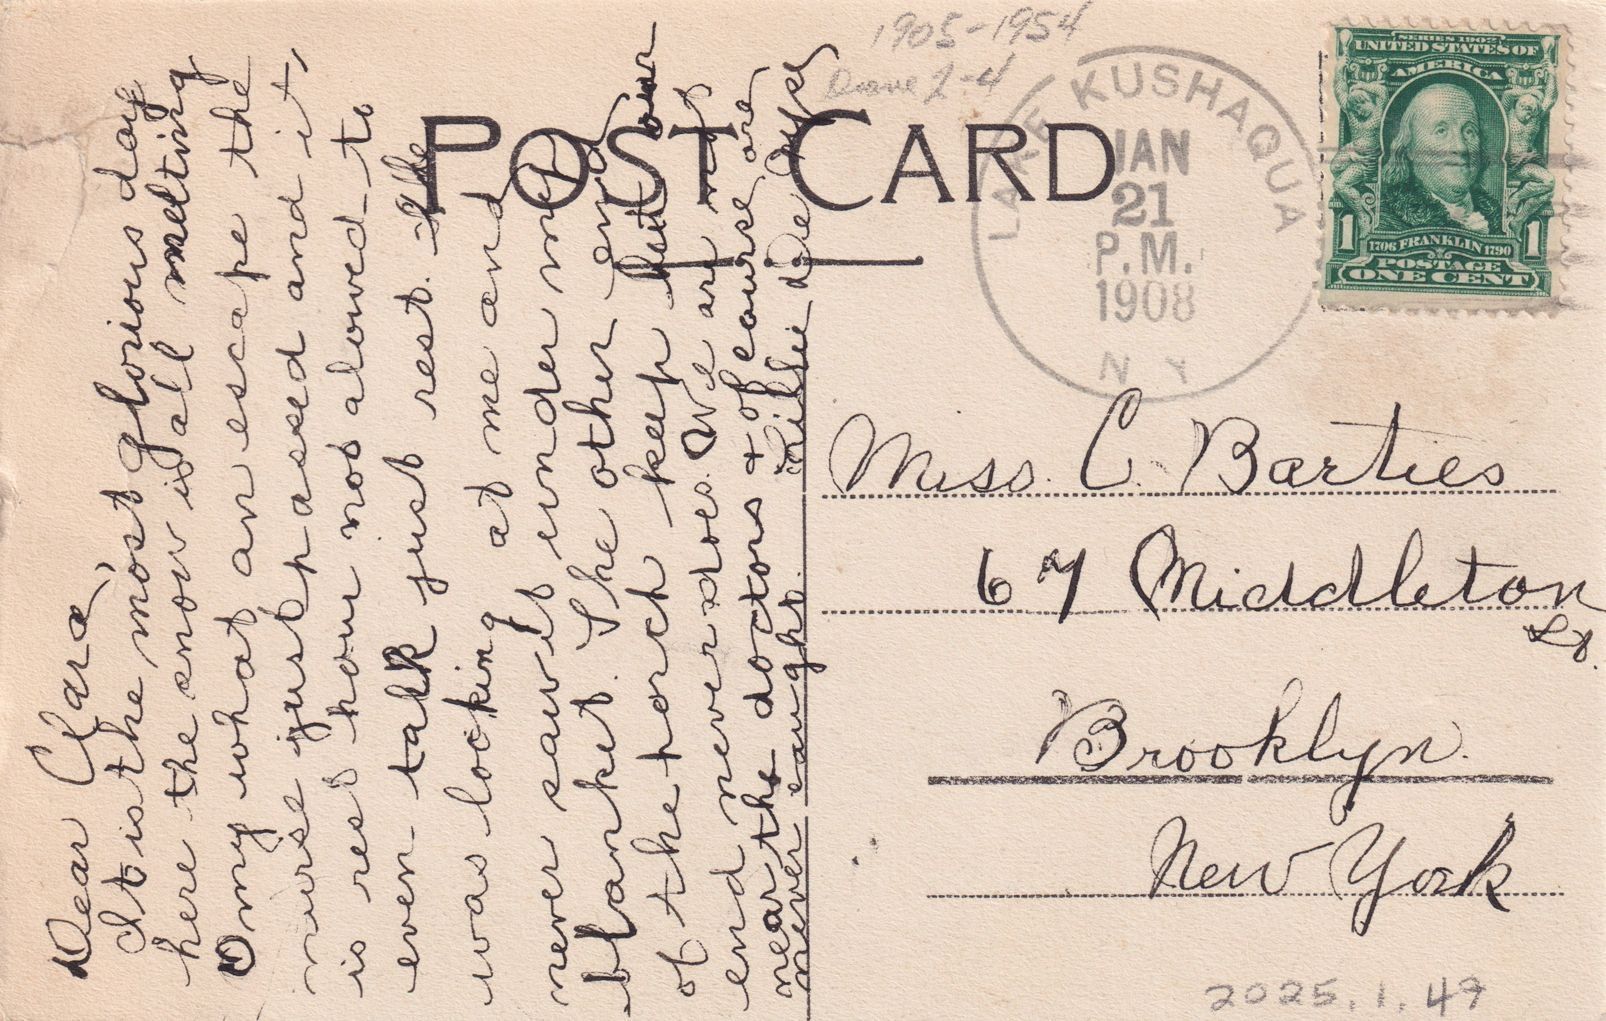 1905-1954
2-4
POST CARD
LAKE KUSHAQUA
JAN
21
P.M.
1908
N Y
SERIES 1902
UNITED STATES OF
AMERICA
1 1706 FRANKLIN 1790 1
POSTAGE
ONE CENT
Dear Clara,
It is the most glorious day
here the snow is all melting
O my what an escape the
nurse just passed and it,
is rest hour not alowed to
even talk just rest. She
was looking at me and
never saw it under my
blanket. The other end
of the porch keep but our
end never does. We are not
near the doctors + of course are
never caught. Lillie De Nyse
Miss. C. Barties
67 Middleton
St.
Brooklyn.
New York
2025.1.49